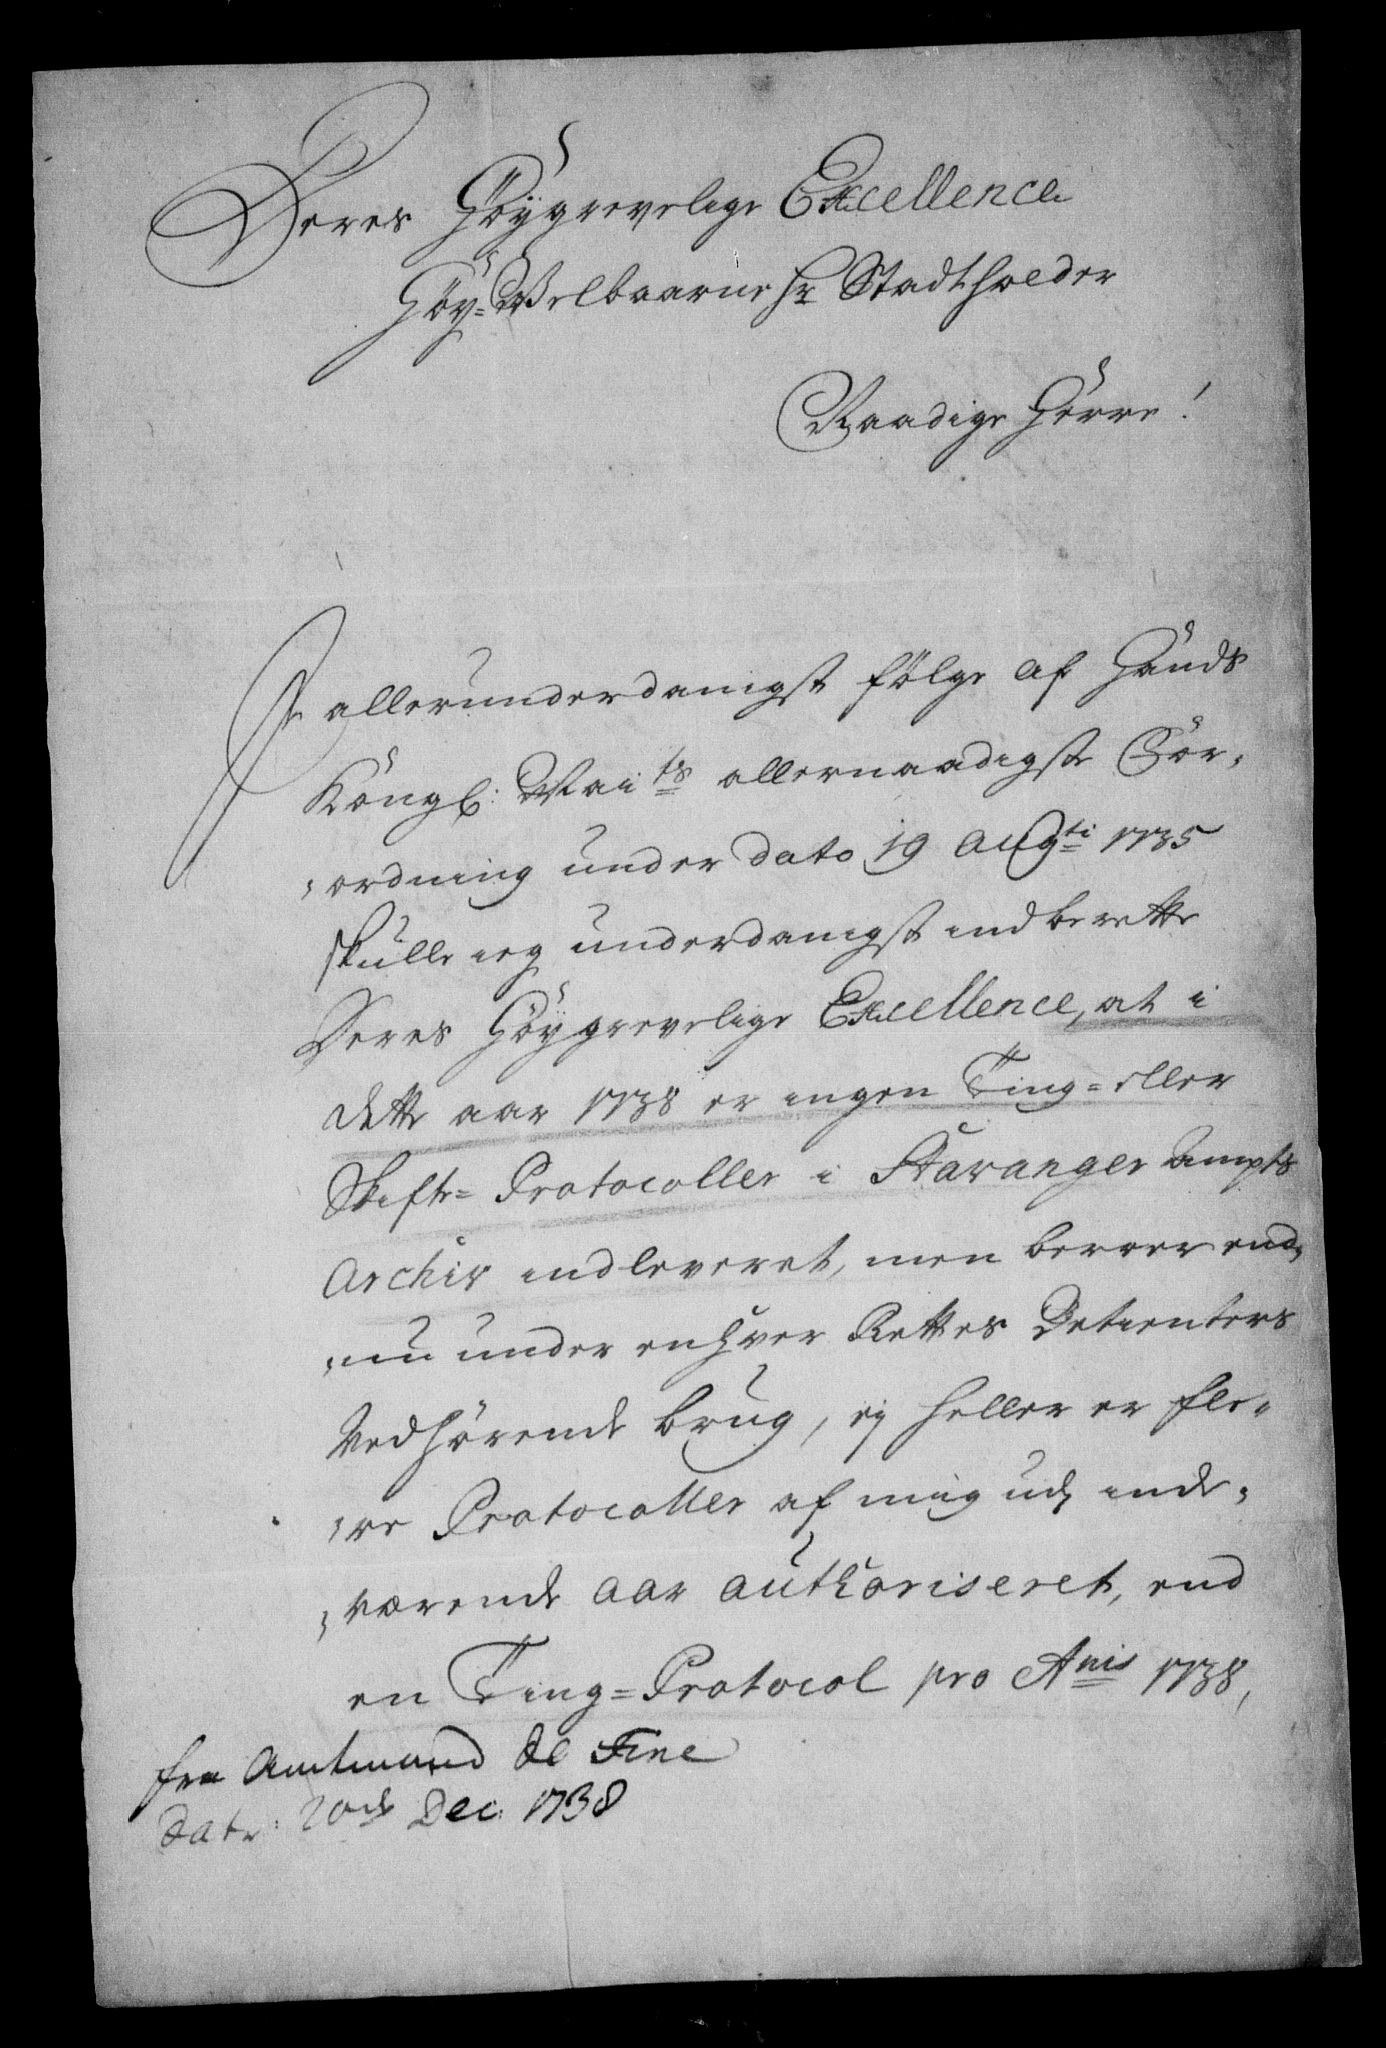 Deres Höygrevelige Excellence
Höy-Welbaarne Hr Stadtholder
Naadige Herre!
I allerunderdanigst fölge af Hands
Köngl: Maits allernaadigste For,
,ordning under dato 19 Augti 1735
skulle ieg underdanigst indberette
Deres Höygrevelige Excellence, at i
dette aar 1738 er ingen Ting= eller
Skifte= Protocoller i Stavanger Ampts
Archiv indleveret, men beroer end,
,nu under enhver Rettes Betienters
Vedhörende brug, ej heller er fle,
,re Protocoller af mig udi inde,
,værende aar authoriseret, end
en Ting=Protocol pro Anis 1738,
fra Amtmand de Fine
Dat: 20de Dec: 1738